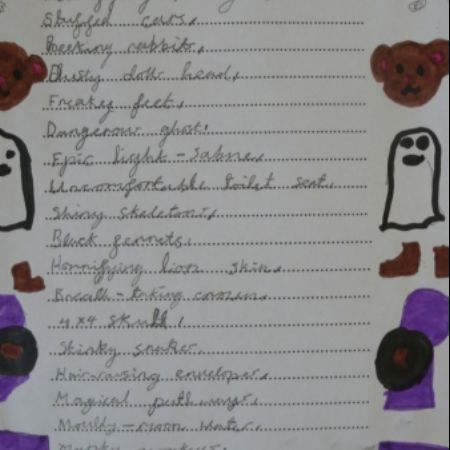 Stuffed cars,
Reeking rabbits,
Dusty dolls head,
Freaky feet,
Dangerous ghost!
Epic light - sabre,
Uncomfortable toilet seat,
Shiny skeletons,
Black ferrets,
Horrifying lion skin,
Breath - taking
4x4 skull,
Stinky
Hair-raising envelopes,
Magical